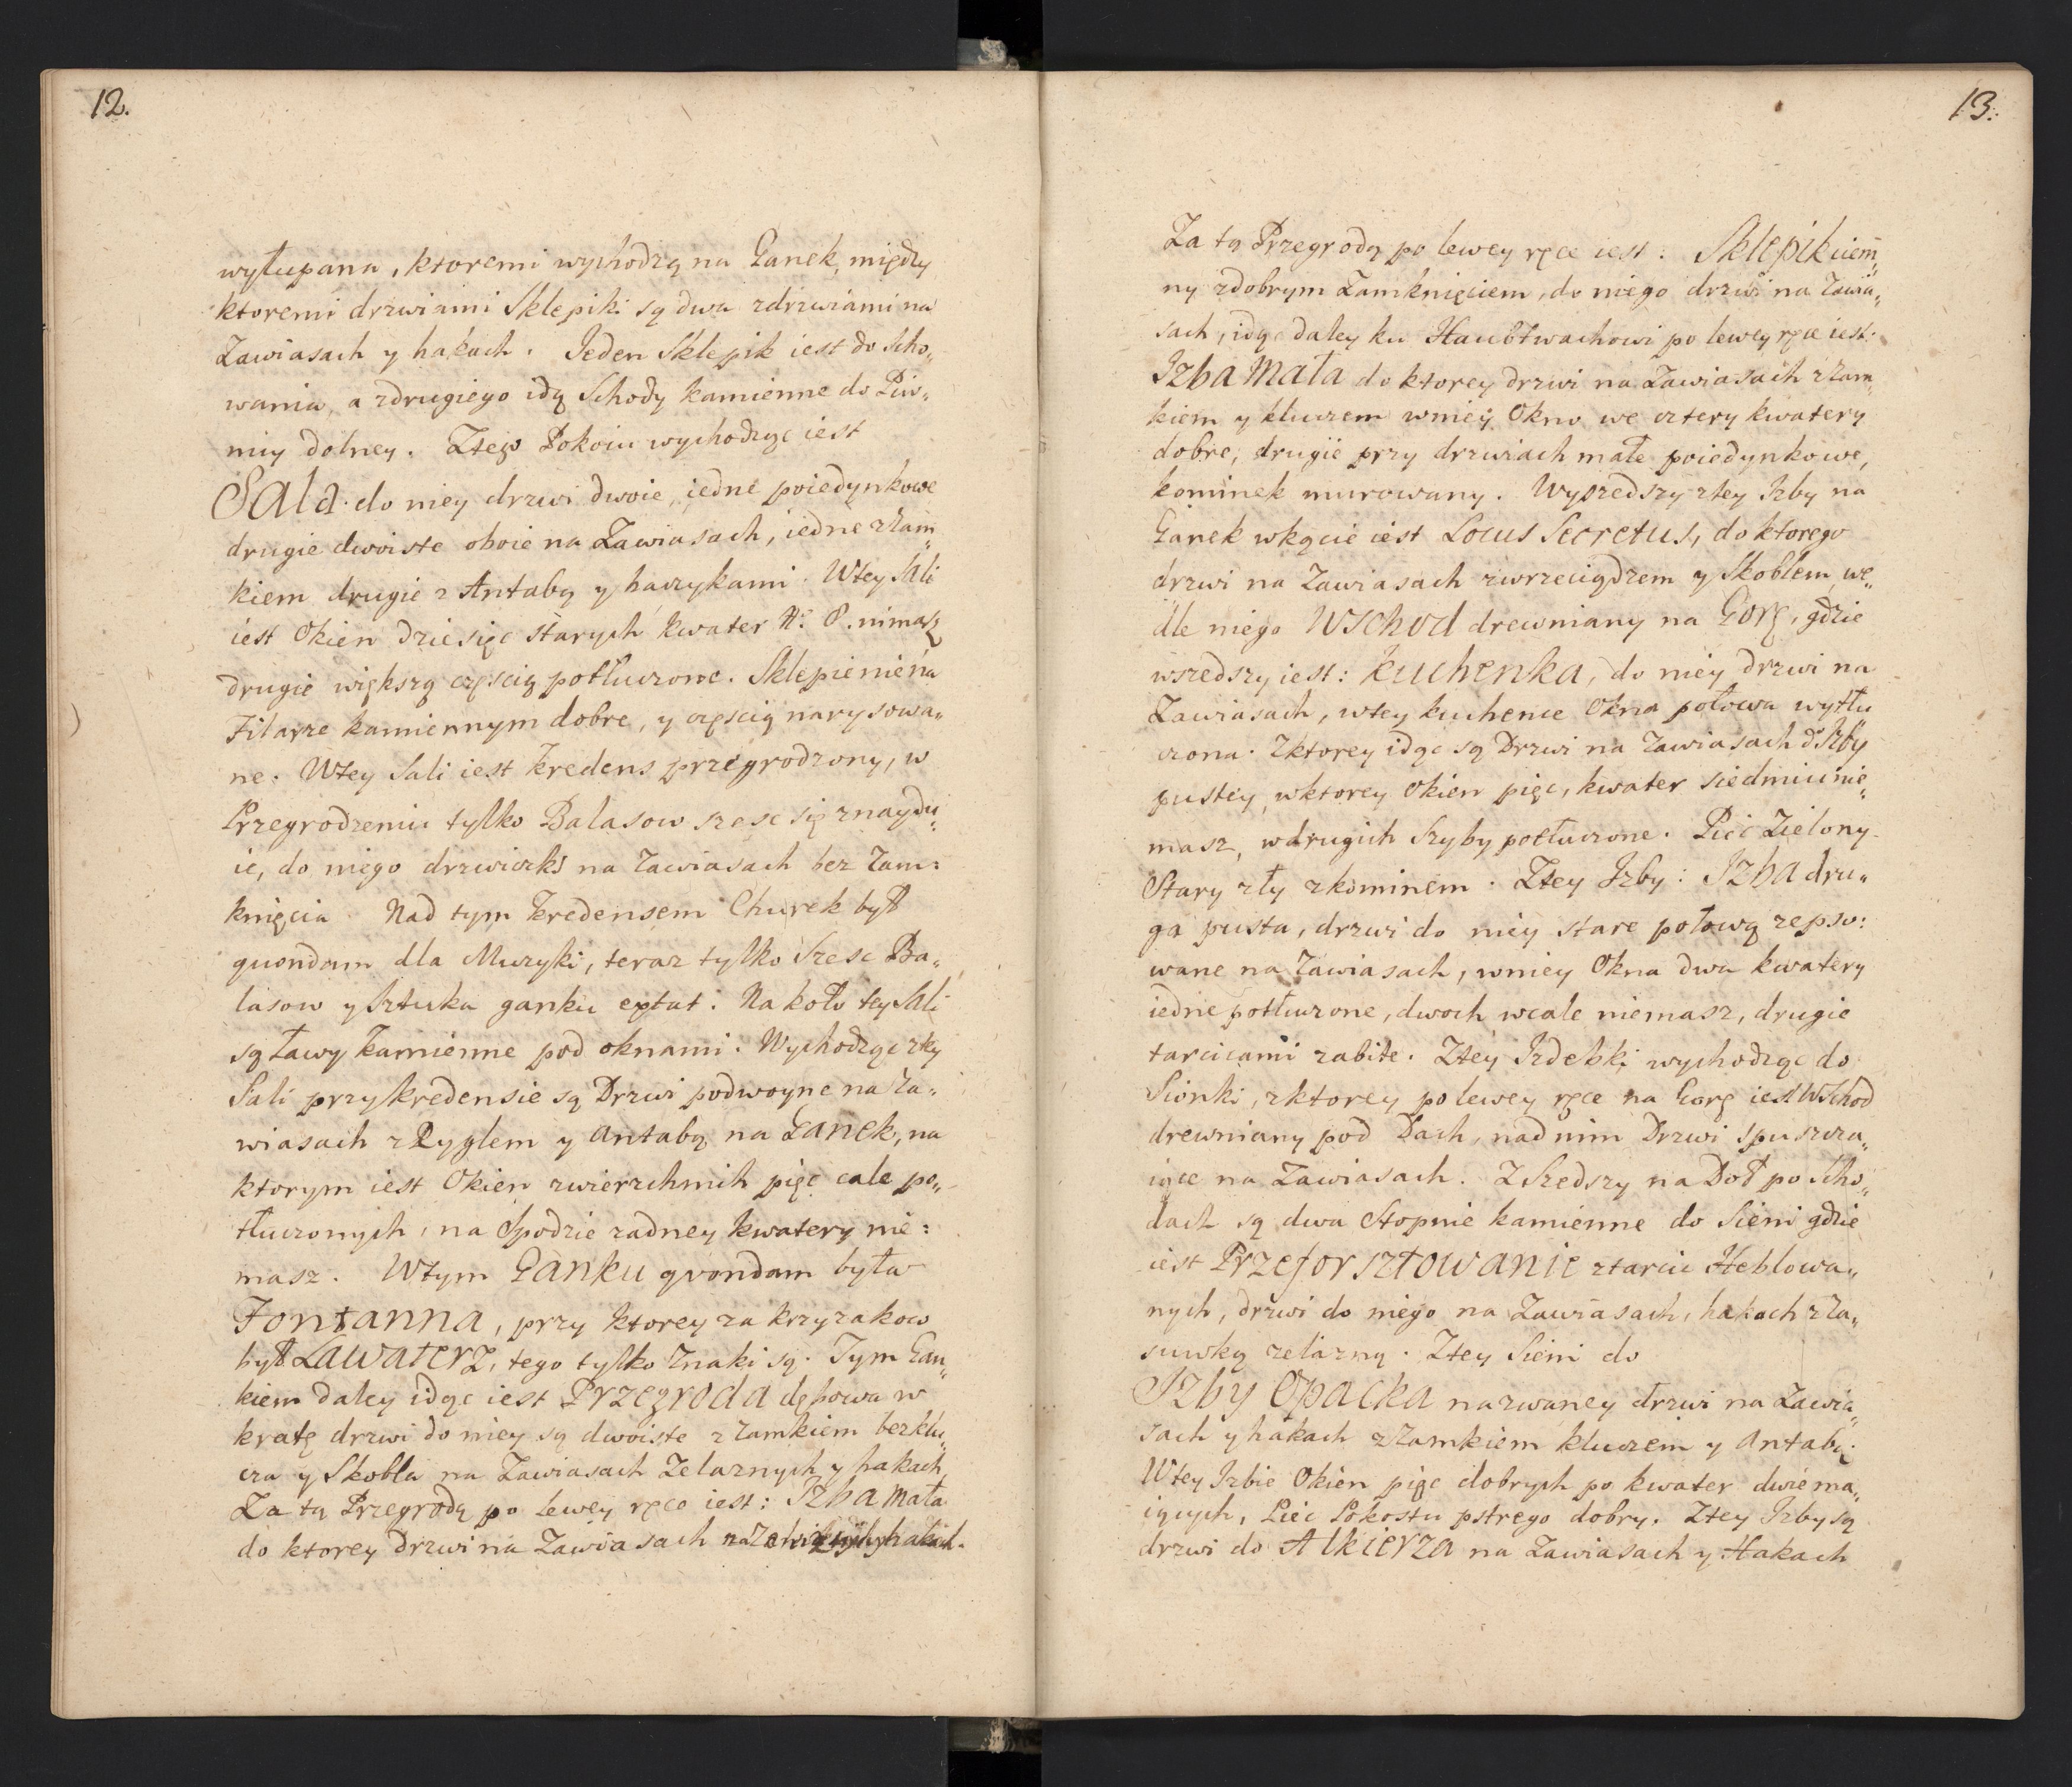 12.
wyłupana, ktoremi wychodzą na Ganek, między
ktoremi drzwiami Sklepiki są dwa zdrzwiami na
Zawiasach y hakach. Jeden Sklepik iest do Scho„
wania, a zdrugiego idą Schody kamienne do Piw„
nicy dolney. Ztego Pokoiu wychodząc iest
Sala. do niey drzwi dwoie, iedne poiedynkowe
drugie dwoiste oboie na Zawiasach, iedne zZam„
kiem drugie z Antabą y haczykami. Wtey Sali
iest Okien dziesięc starych kwater Nº 8. nimasz
drugie większą częscią potłuczone. Sklepienie na
Filarze kamiennym dobre, y częscią narysowa„
ne. Wtey Sali iest Kredens przegrodzony, w
Przegrodzeniu tylko Balasow szesc się znaydu„
ie, do niego drzwiczki na Zawiasach bez Zam:
knięcia. Nad tym Kredensem Churek był
quondam dla Muzyki, teraz tylko Szesc Ba„
lasow y Sztuka ganku extat. Na koło tey Sali
są Ławy Kamienne pod oknami. Wychodząc ztey
Sali przykredensie są Drzwi podwoyne na Za„
wiasach zRyglem y Antabą na Ganek, na
ktorym iest Okien zwierzchnich pięc cale po„
tłuczonych, na Spodzie zadney kwatery nie:
masz. Wtym Ganku qvondam była
Fontanna, przy ktorey za krzyzakow
był Lawaterz, tego tylko Znaki są. Tym Gan„
kiem daley idąc iest Przegroda dębowa w
kratę drzwi do niey są dwoiste z Zamkiem bezklu„
cza y Skobla na Zawiasach Zelaznych y hakach
Za tą Przegrodą po lewey ręce iest: Izba Mała
do ktorey drzwi na Zawiasach y hakach.
13.
Za tą Przegrodą po lewey ręce iest: Sklepik ciem„
ny zdobrym Zamknięciem, do niego drzwi na Zawia„
sach, idąc daley ku Haubtwachowi po lewey ręce iest.
Izba Mała do ktorey drzwi na Zawiasach z Zam„
kiem y kluczem wniey Okno we cztery kwatery
dobre, drugie przy drzwiach małe poiedynkowe,
kominek murowany. Wyszedszy ztey Izby na
Ganek wkącie iest Locus Secretus, do ktorego
drzwi na Zawiasach zwrzeciądzem y Skoblem, we„
dle niego Wschod drewniany na Gorę, gdzie
wszedszy iest: Kuchenka, do niey drzwi na
Zawiasach, wtey kuchence Okna połowa wytłu
czona. Zktorey idąc są Drzwi na Zawiasach d'Izby
pustey, wktorey Okien pięc, kwater siedmiu nie„
masz, wdrugich Szyby potłuczone. Piec Zielony
Stary zły zkominem. Ztey Izby: Izba dru„
ga pusta, drzwi do niey stare połową zepso:
wane na Zawiasach, wniey Okna dwa kwatery
iedne potłuczone, dwoch wcale niemasz, drugie
tarcicami zabite. Ztey Izdebki wychodząc do
Sionki, zktorey po lewey ręce na Gorę iest Wschod
drewniany pod Dach, nad nim Drzwi spuszcza„
iące na Zawiasach. ZSzedszy na Doł po Scho„
dach są dwa Stopnie kamienne do Sieni gdzie
iest Przeforsztowanie ztarcic Heblowa„
nych, drzwi do niego na Zawiasach, hakach zZa„
suwką zelazną. Ztey Sieni do
Izby Opacka nazwaney drzwi na Zawia„
sach y hakach zZamkiem kluczem y Antabą.
Wtey Izbie Okien pięc dobrych po kwater dwie ma„
iących, Piec Pokostu pstrego dobry. Ztey Izby są
drzwi do Alkierza na Zawiasach y Hakach